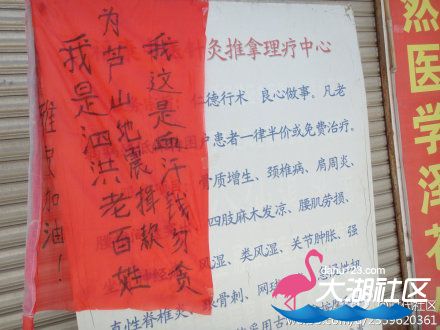 我这是血汗钱勿贪
为芦山地震捐款
我是泗洪老百姓
雅安加油!
针灸推拿理疗中心
仁德行术 良心做事。凡老
困户患者一律半价或免费治疗。
骨质增生、颈椎病、肩周炎、
四肢麻木发凉、腰肌劳损、
风湿、类风湿、关节肿胀、强
直性脊椎炎、骨刺、网
然医学泽
大湖社区